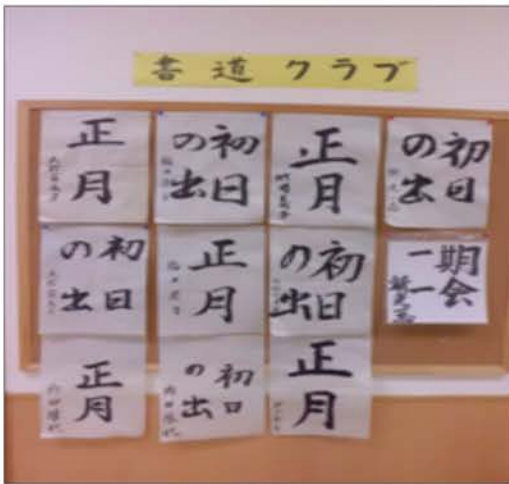 書道クラブ
正月
初日
の出
正月
初日
の出
初日
の出
正月
初日
の出
一期
一会
正月
初日
の出
正月